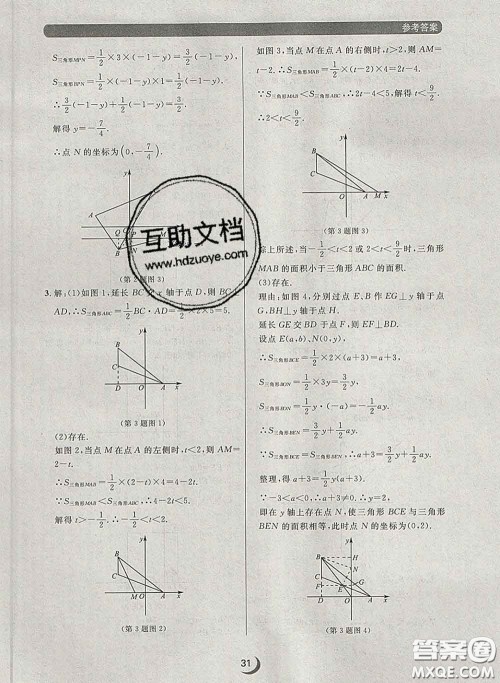 参考答案
S三角形MPN=1/2×3×(-1-y)=3/2(-1-y).
S三角形BPN=1/2×1×(-1-y)=1/2(-1-y).
∴3/2(-1-y)+1/2(-1-y)=3/2.
解得y=-7/4.
∴点N的坐标为(0,-7/4).
y
A
Q
P
M
B
N
(第2题图3)
3.解:(1)如图1,延长BC交x轴于点D,则BC⊥
AD,∴S三角形ABC=1/2BC·AD=1/2×2×5=5.
y
B
C
D
O
A
x
(第3题图1)
(2)存在.
如图2,当点M在点A的左侧时,t<2,则AM=
2-t.
∴S三角形MAB=1/2×(2-t)×4=4-2t.
∵S三角形MAB<S三角形ABC,∴4-2t<5.
解得t>-1/2.∴-1/2<t<2.
y
B
C
M
O
A
x
(第3题图2)
如图3,当点M在点A的右侧时,t>2,则AM=
t-2.∴S三角形MAB=1/2×(t-2)×4=2t-4.
∵S三角形MAB<S三角形ABC,∴2t-4<5,解得t<9/2.
∴2<t<9/2.
y
B
C
O
A
M
x
(第3题图3)
综上所述,当-1/2<t<2或2<t<9/2时,三角形
MAB的面积小于三角形ABC的面积.
(3)存在.
理由:如图4,分别过点E,B作EG⊥y轴于点
G,BH⊥y轴于点H.
延长GE交BD于点F,则EF⊥BD.
设点E(a,b),N(0,y),
∴S三角形BCE=1/2×2×(a+3)=a+3.
∵S三角形BON=1/2×3y=3/2y.
S三角形EON=1/2y·(-a)=-1/2ay.
∴S三角形BEN=3/2y+1/2ay.
∵S三角形BCE=S三角形BEN,∴a+3=3/2y+1/2ay.
整理,得a+3=1/2y(a+3).
∵-3<a<0,∴a+3≠0.∴y=2.
即在y轴上存在点N,使三角形BCE与三角形
BEN的面积相等,此时点N的坐标为(0,2).
y
B
H
N
C
G
F
E
D
O
A
x
(第3题图4)
互助文档
www.hdzuoye.com
31
答案圈
MXQE.COM